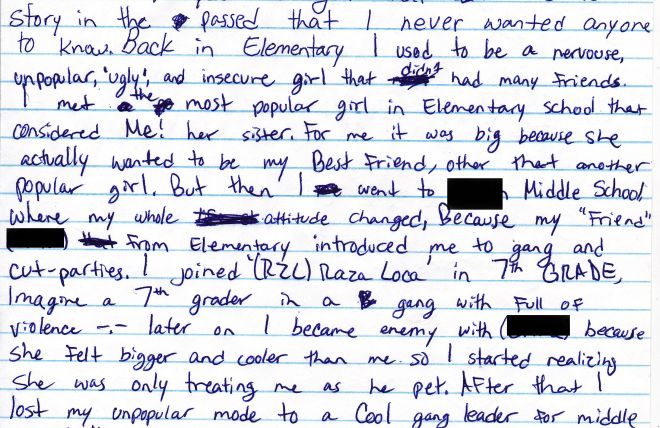 story in the passed that I never wanted anyone
to know. Back in Elementary I used to be a nervouse,
unpopular, 'ugly', and insecure girl that didn't had many Friends.
I met the most popular girl in Elementary school that
considered Me! her sister. For me it was big because she
actually wanted to be my Best Friend, other that another
popular girl. But then I went to Middle School
where my whole attitude changed, Because my "Friend"
( ) From Elementary introduced me to gang and
cut-parties. I joined '(RZL) Raza Loca' in 7th GRADE,
Imagine a 7th grader in a gang with Full of
violence -.- later on I became enemy with ( because
she Felt bigger and cooler than me. so I started realizing
she was only treating me as he pet. AFter that I
lost my unpopular mode to a Cool gang leader For middle